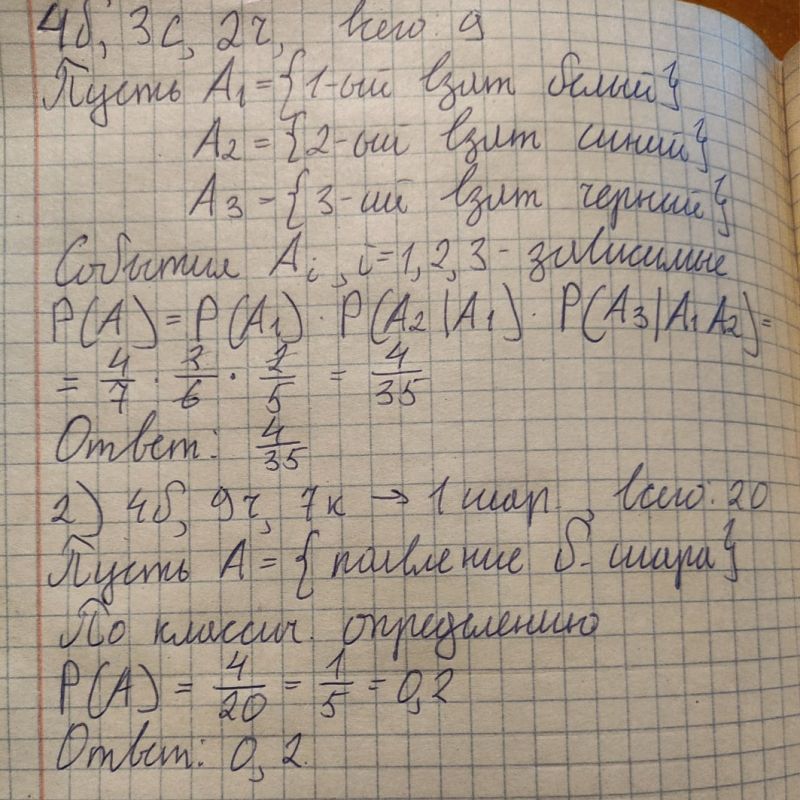 4б, 3с, 2ч, всего: 9
Пусть A₁ = {1-ый взят белый}
A₂ = {2-ый взят синий}
A₃ - {3-ий взят черный}
События Aᵢ, i=1,2,3 - зависимые
P(A) = P(A₁) · P(A₂|A₁) · P(A₃|A₁A₂) =
= 4/7 · 3/6 · 2/5 = 4/35
Ответ: 4/35
2) 4б, 9ч, 7к → 1 шар, всего: 20
Пусть A = {появление б. шара}
По классич. определению
P(A) = 4/20 = 1/5 = 0,2
Ответ: 0,2.